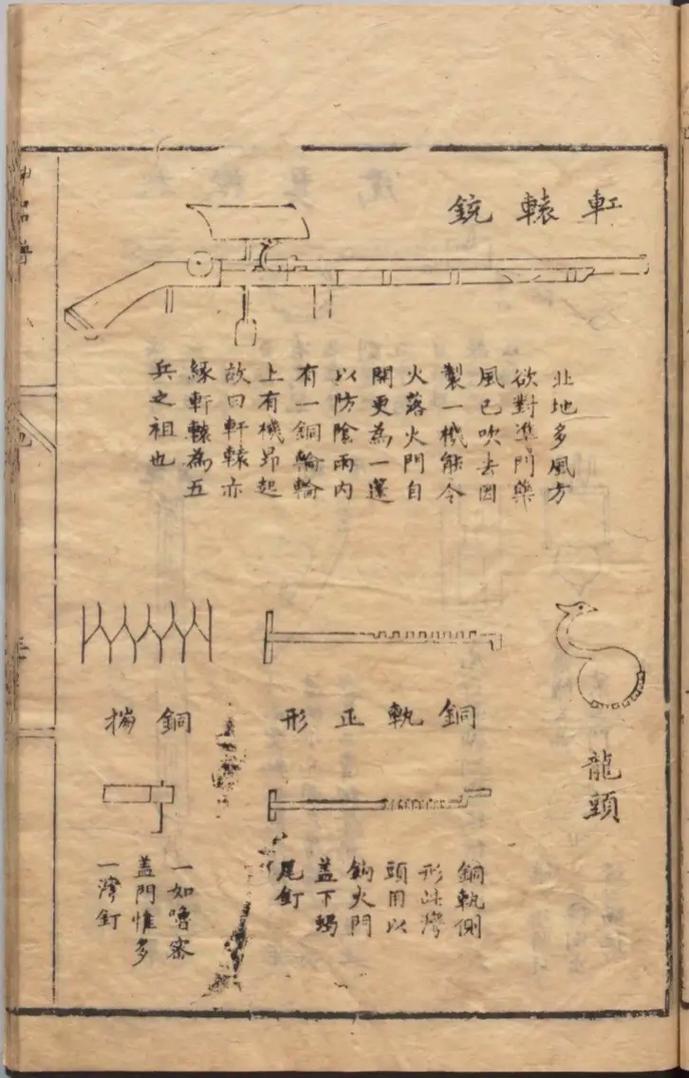 軒轅銃
北地多風方
欲對準門藥
風已吹去因
製一機能令
火落火門自
開更為一篷
以防陰雨內
有一銅輪輪
上有機昂起
故曰軒轅亦
緣軒轅為五
兵之祖也
龍頭
銅軌正形
銅
銅軌側
形此灣
頭用以
鈎火門
蓋下蝎
尾釘
一如嚕密
蓋門惟多
一灣釘
神器譜